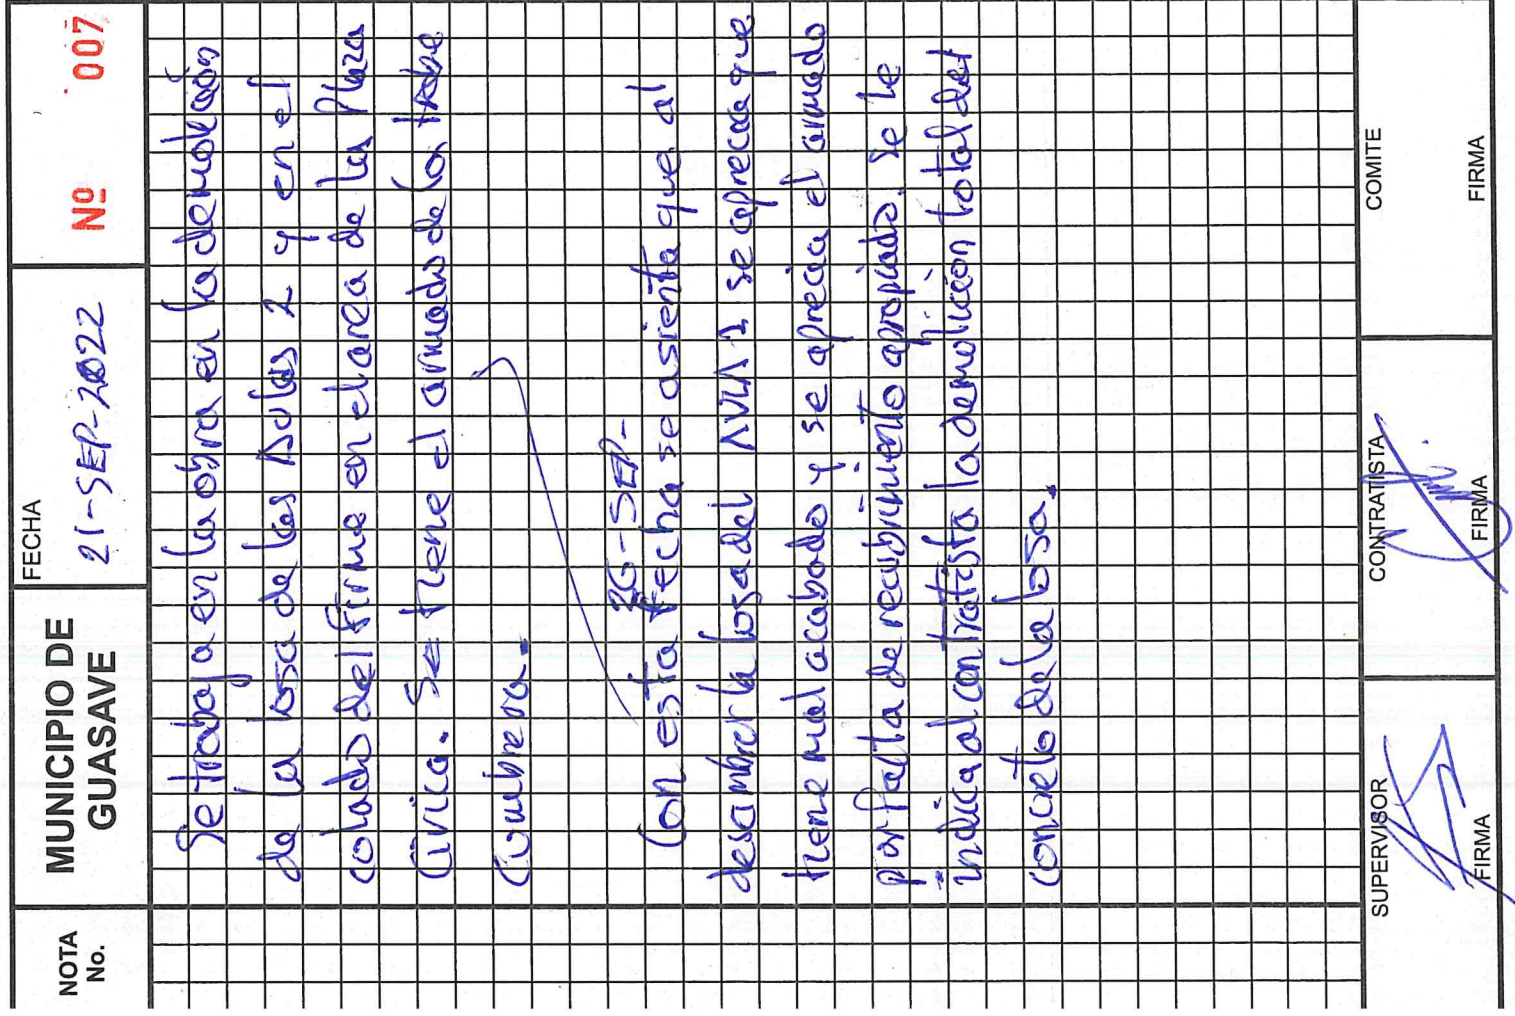 NOTA
No.
MUNICIPIO DE
GUASAVE
FECHA
21-SEP-2022
Nº 007
Se trabaja en la obra en la demolición
de la losa de las Aulas 2 y en el
colado del firme en el area de la Plaza
Civica. Se tiene el armado de la trabe
Cumbrera.
26-SEP-
Con esta fecha se asienta que al
desimbrar la losa del AULA 1 se aprecia que
tiene mal acabado y se aprecia el armado
por falta de recubrimiento apropiado. Se le
indica al contratista la demolición total del
concreto de la losa.
SUPERVISOR
FIRMA
CONTRATISTA
FIRMA
COMITE
FIRMA